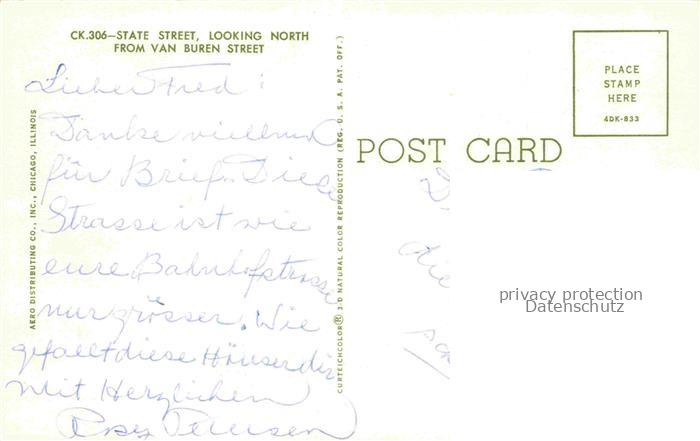 CK.306—STATE STREET, LOOKING NORTH
FROM VAN BUREN STREET
Lieber Fred:
Danke vielmal
für Brief. Diese
Strasse ist wie
eure Bahnhofstrasse
nur grösser. Wie
gefaellt diese Häuser dir
Mit Herzlichen
AERO DISTRIBUTING CO., INC., CHICAGO, ILLINOIS
CURTEICHCOLOR® 3-D NATURAL COLOR REPRODUCTION (REG. U. S. A. PAT. OFF.)
POST CARD
PLACE
STAMP
HERE
4DK-833
die
privacy protection
Datenschutz